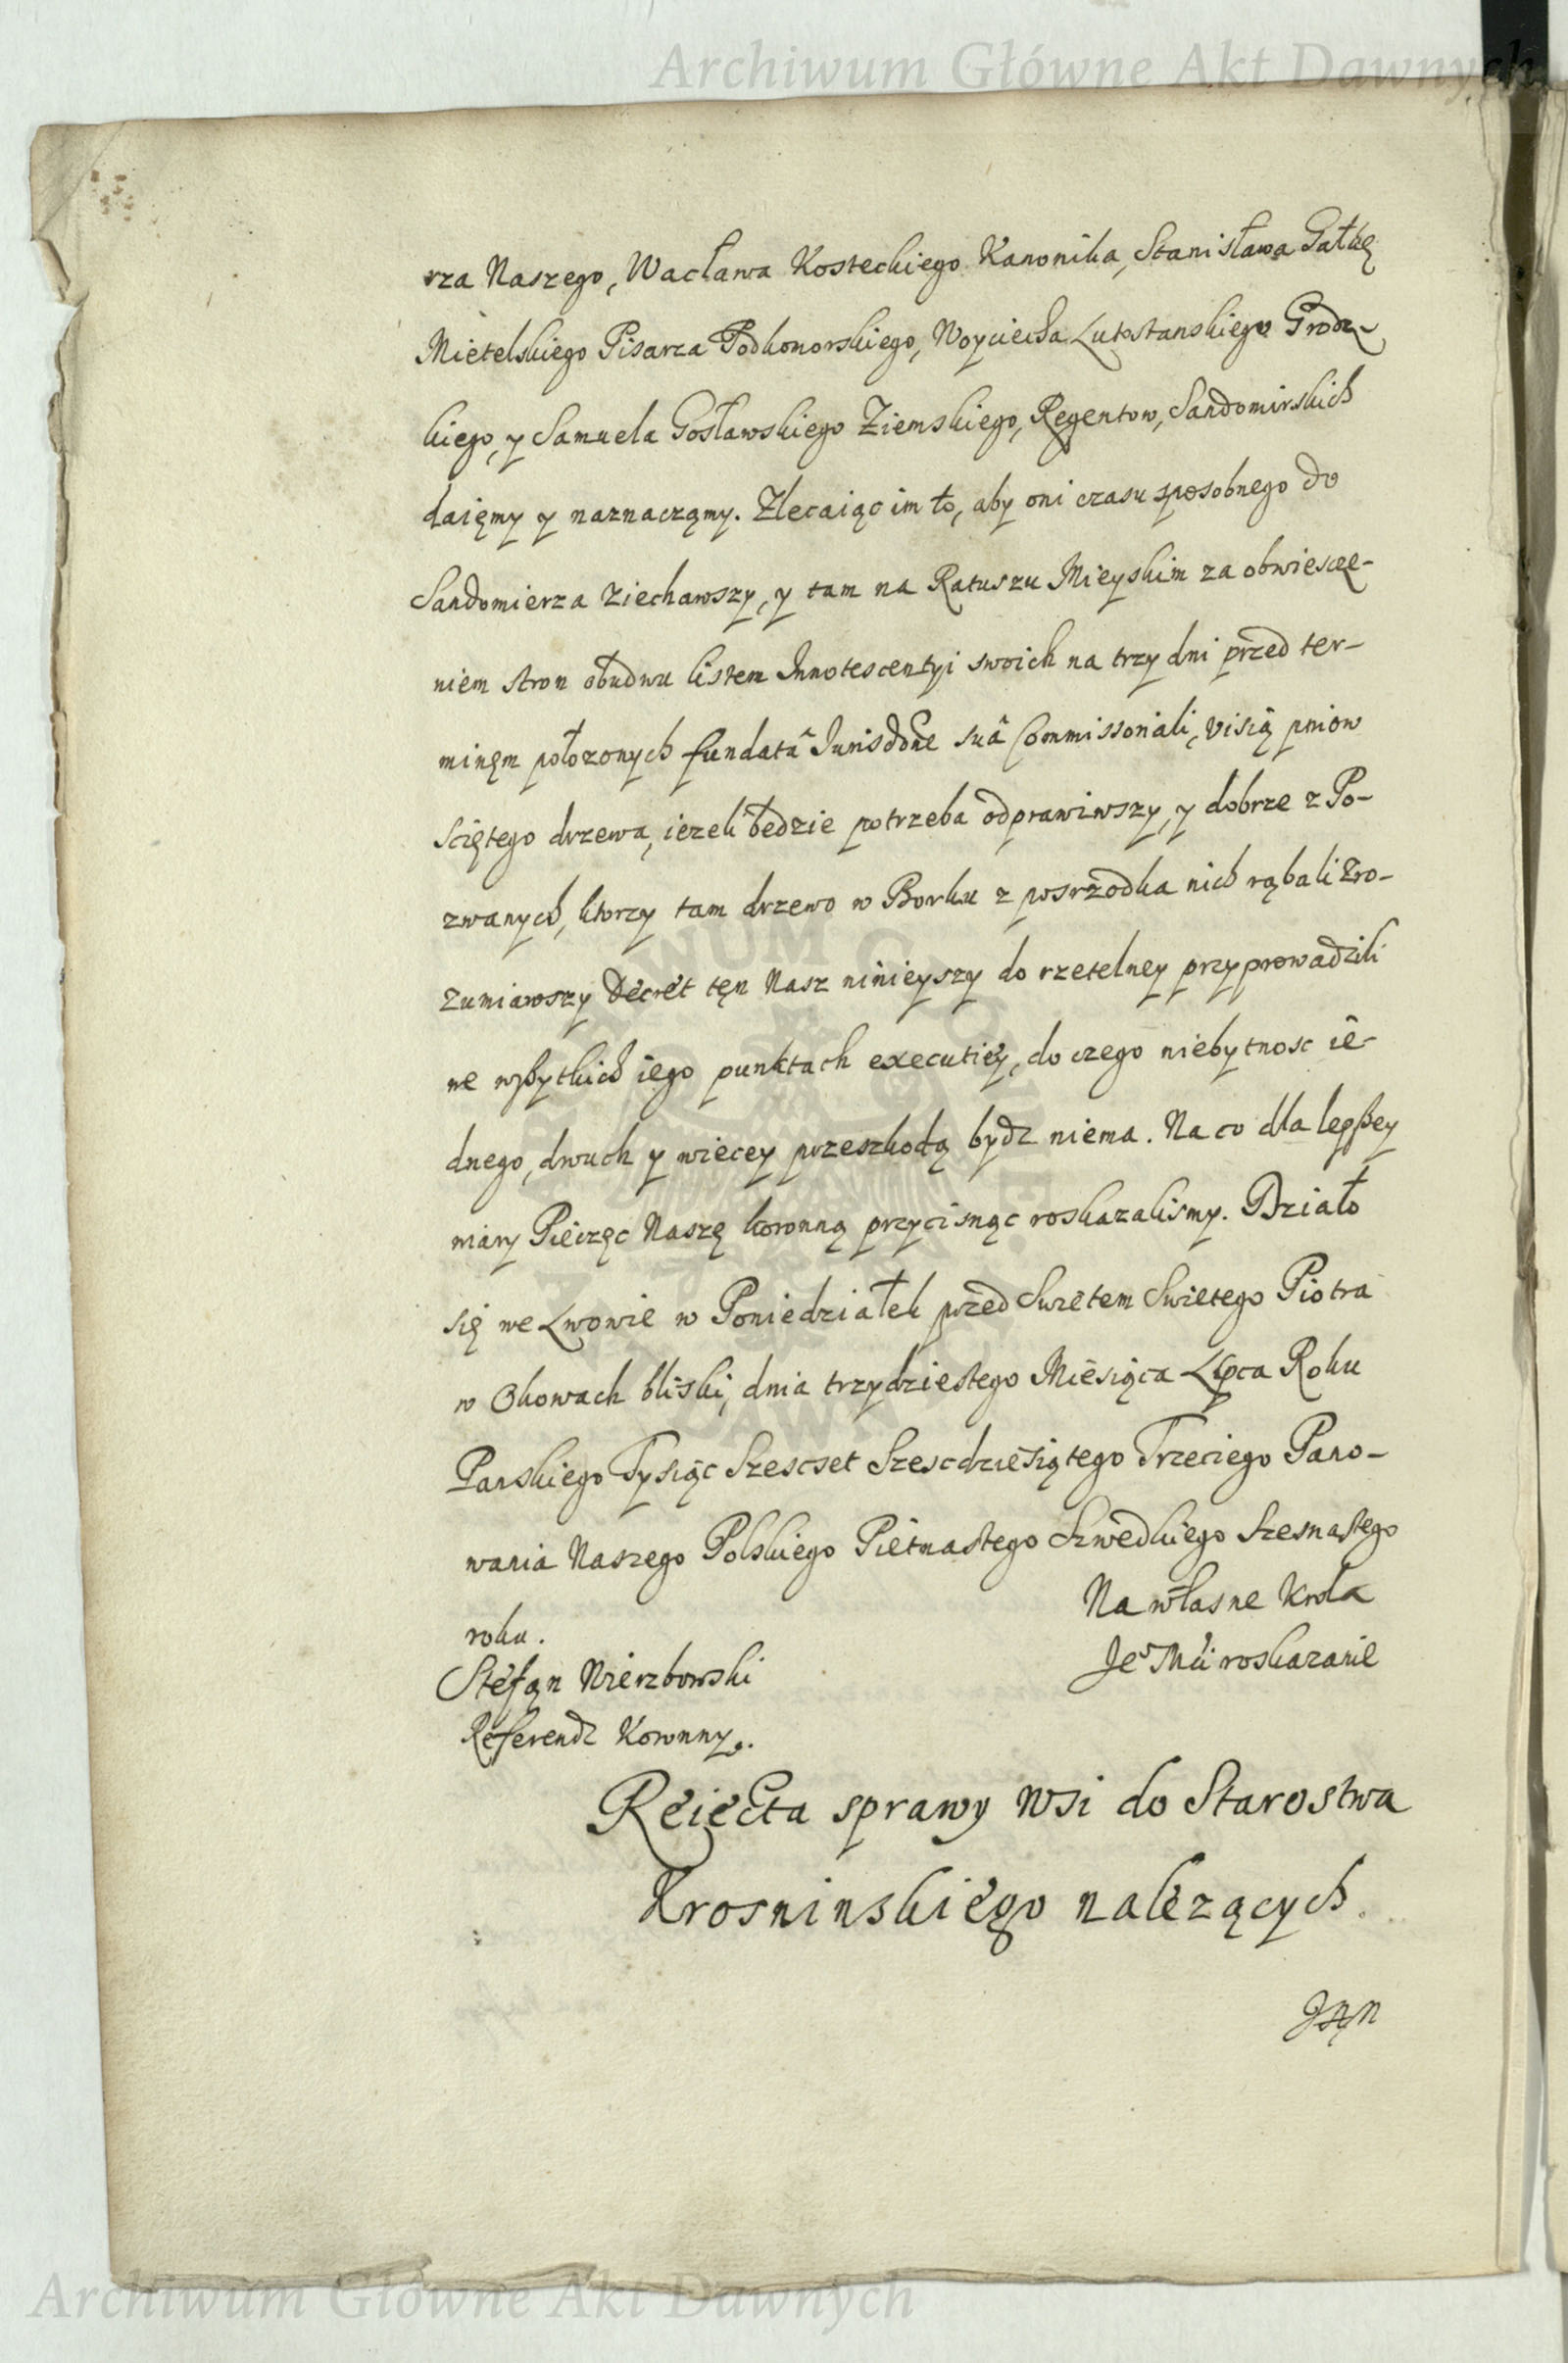 Archiwum Główne Akt Dawnych
rza Naszego, Wacława Kosteckiego Kanonika, Stanisława Gałkę
Mietelskiego Pisarza Podkomorskiego, Woyciecha Lutostanskiego Grodz-
kiego, y Samuela Gosławskiego Ziemskiego, Regentow, Sandomirskich
daięmy y naznacząmy. Zlecaiąc im to, aby oni czasu sposobnego do
Sandomierza ziechawszy, y tam na Ratuszu Mieyskim za obwiescze-
niem stron obudwu listem Innotescentyi swoich na trzy dni przed ter-
minęm położonych fundatâ Jurisdone suâ Commissoriali, visią pniow
sciętego drzewa, iezeli będzie potrzeba odprawiwszy, y dobrze z Po-
zwanych, ktorzy tam drzewo w Borku z posrzodka nich rąbali zro-
zumiawszy Decret tęn Nasz ninieyszy do rzetelney przyprowadzili
we wszytkich iego punktach executiey, do czego niebytnosc ie-
dnego, dwuch y wiecey przeszkodą bydz niema. Na co dla lepszey
wiary Pieczęc Naszę koronną przycisnąc roskazalismy. Działo
się we Lwowie w Poniedziałek przed Swietem Swietego Piotra
w Okowach bliski, dnia trzydziestego Miesiąca Lipca Roku
Panskiego Tysiąc Szescset Szescdziesiątego Trzeciego Pano-
wania Naszego Polskiego Pietnastego Szwedkiego Szesnastego
roku.
Na własne Krola
Je° Mći roskazanie
Stefąn Wierzbowski
Referendz Koronny.
Reiecta sprawy wsi do Starostwa
Krosninskiego nalezących.
Jąn
Archiwum Główne Akt Dawnych